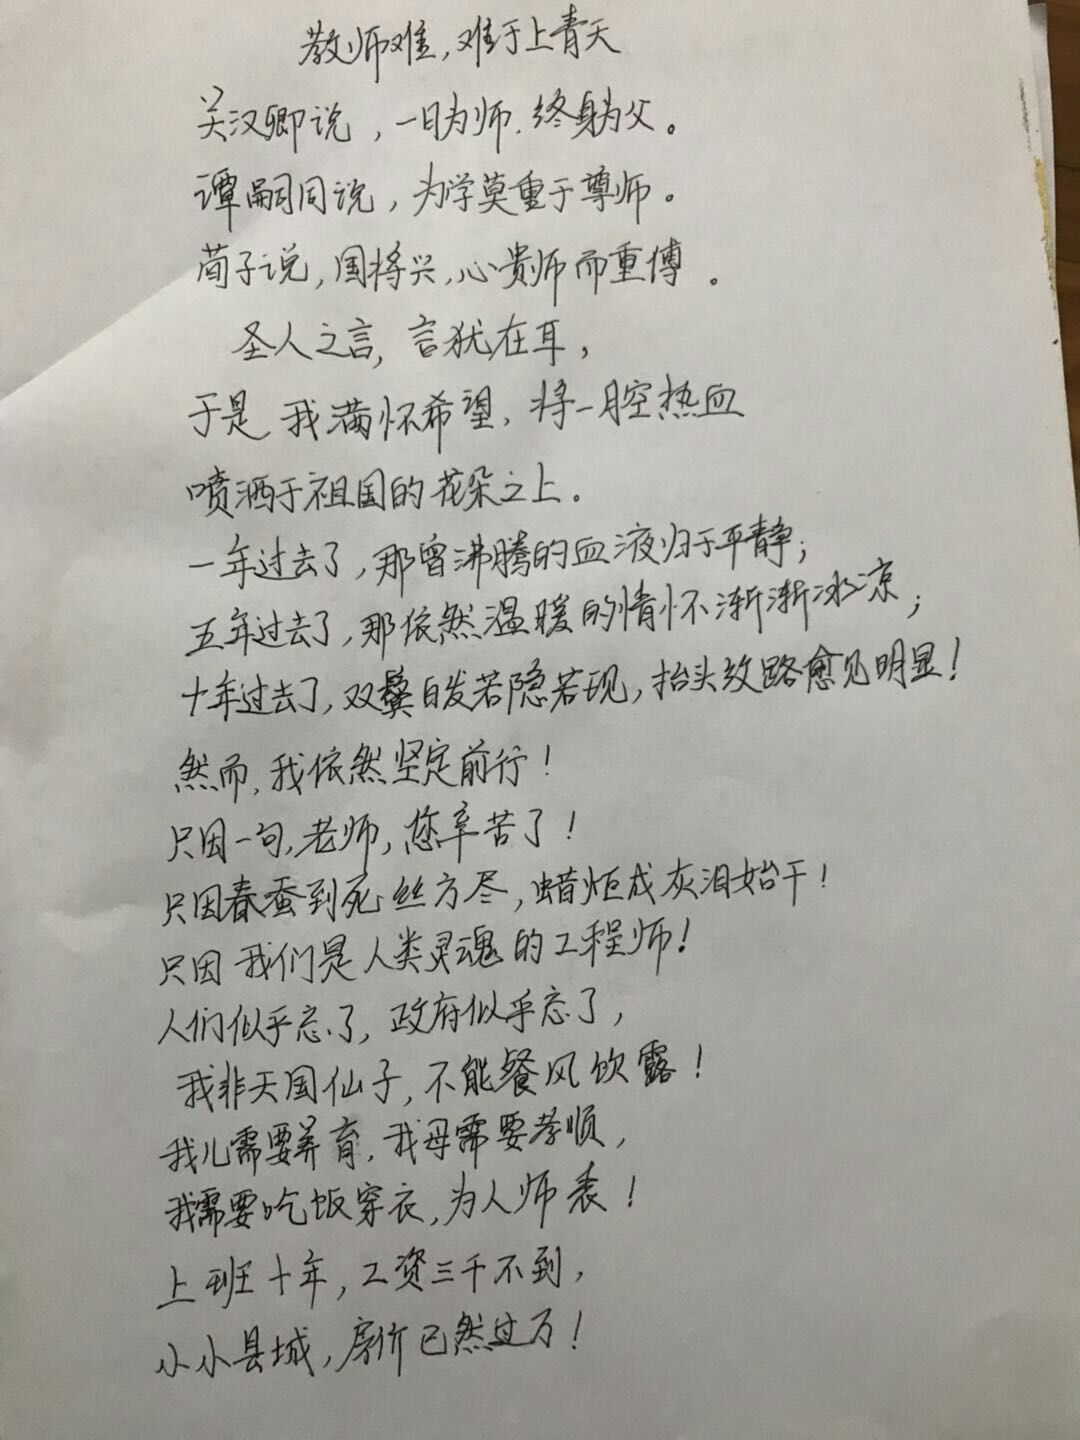 教师难，难于上青天
关汉卿说，一日为师.终身为父。
谭嗣同说，为学莫重于尊师。
荀子说，国将兴，心贵师而重傅。
圣人之言，言犹在耳，
于是我满怀希望，将一腔热血
喷洒于祖国的花朵之上。
一年过去了，那曾沸腾的血液归于平静；
五年过去了，那依然温暖的情怀渐渐冰凉；
十年过去了，双鬓白发若隐若现，抬头纹路愈见明显！
然而，我依然坚定前行！
只因一句，老师，您辛苦了！
只因春蚕到死丝方尽，蜡炬成灰泪始干！
只因我们是人类灵魂的工程师！
人们似乎忘了，政府似乎忘了，
我非天国仙子，不能餐风饮露！
我儿需要养育，我母需要孝顺，
我需要吃饭穿衣，为人师表！
上班十年，工资三千不到，
小小县城，房价已然过万！